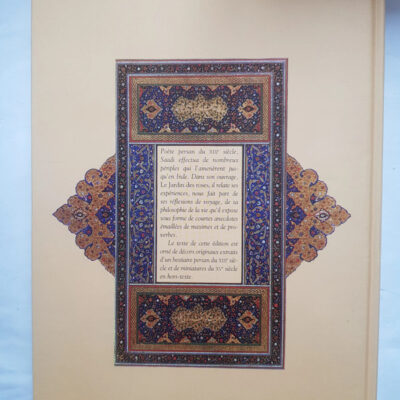 Poète persan du XIIIe siècle,
Saadi effectua de nombreux
périples qui l'amenèrent jus-
qu'en Inde. Dans son ouvrage,
Le Jardin des roses, il relate ses
expériences, nous fait part de
ses réflexions de voyage, de sa
philosophie de la vie qu'il expose
sous forme de courtes anecdotes
émaillées de maximes et de pro-
verbes.
Le texte de cette édition est
orné de décors originaux extraits
d'un bestiaire persan du XIIIe siè-
cle et de miniatures du XVe siècle
en hors-texte.